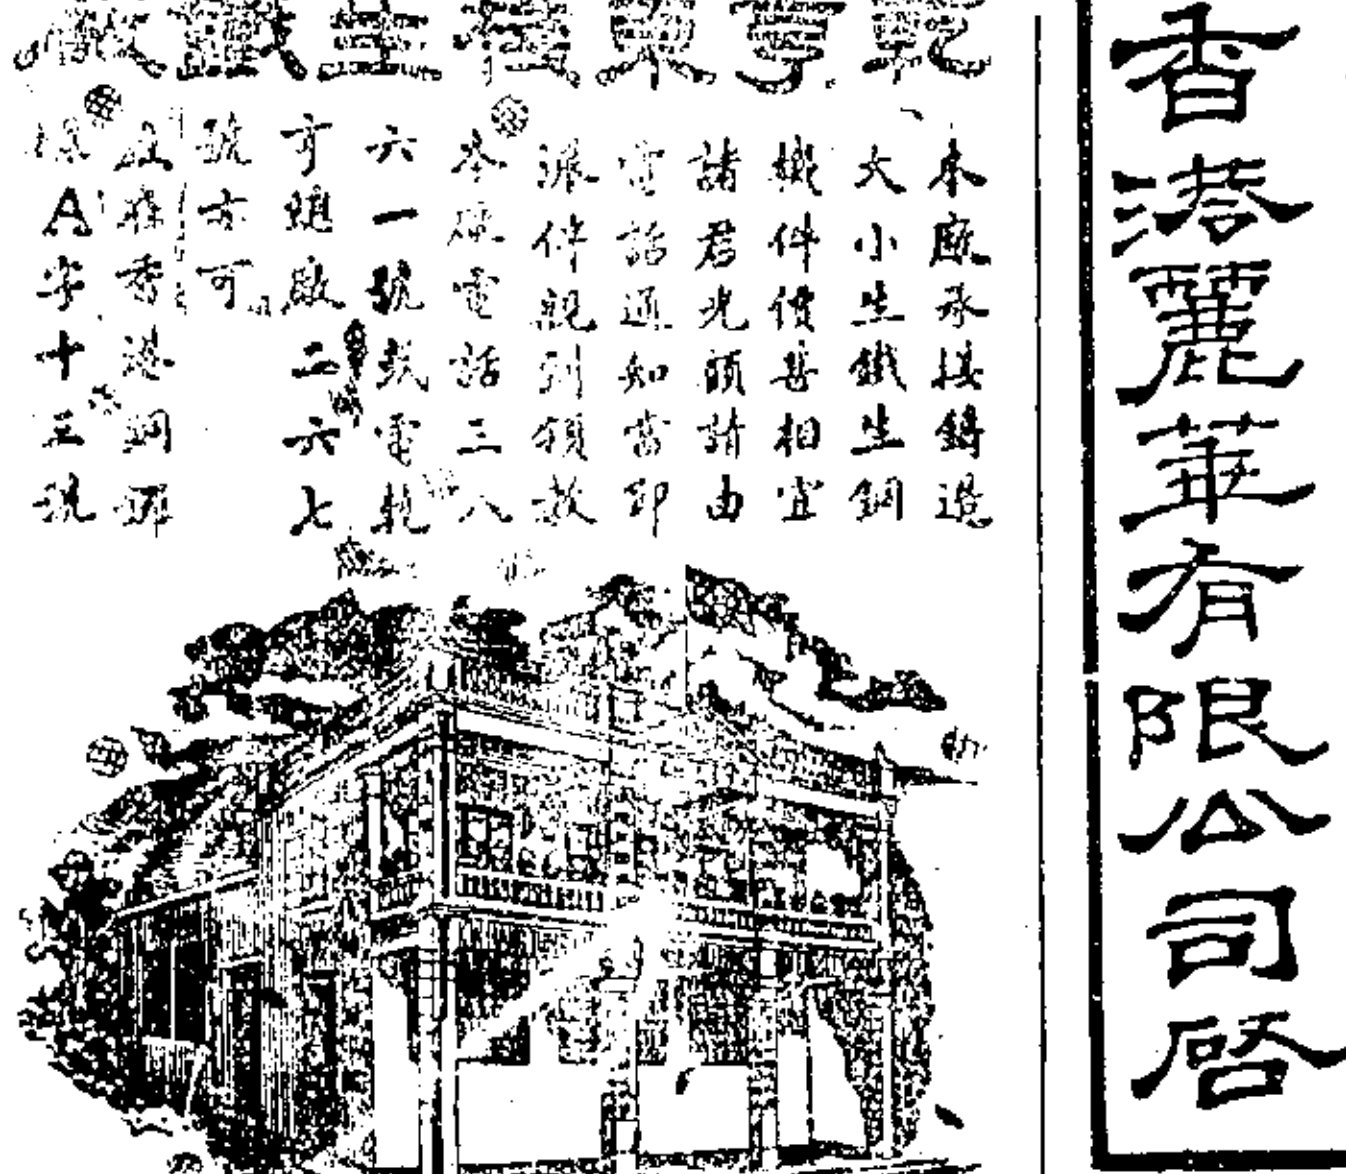 香港麗華有限公司啓
乾亨東棧生鐵廠
本廠承接鑄造
大小生鐵生銅
機件價甚相宜
諸君光顧請由
電話通知當即
派伴親到領教
本廠電話三八
六一號或電乾
亨總廠二六七
號亦可
香港銅鑼
A字十三號